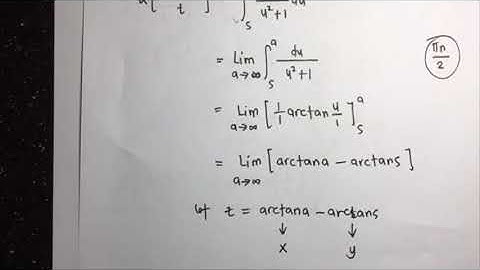 t ] = ∫ₛ du/(u²+1)
= Lim a→∞ ∫ₛᵃ du/(u²+1)
πn/2
= Lim a→∞ [1/1 arctan u/1]ₛᵃ
= Lim a→∞ [arctana − arctans]
let z = arctana − arctans
↓ ↓
x y